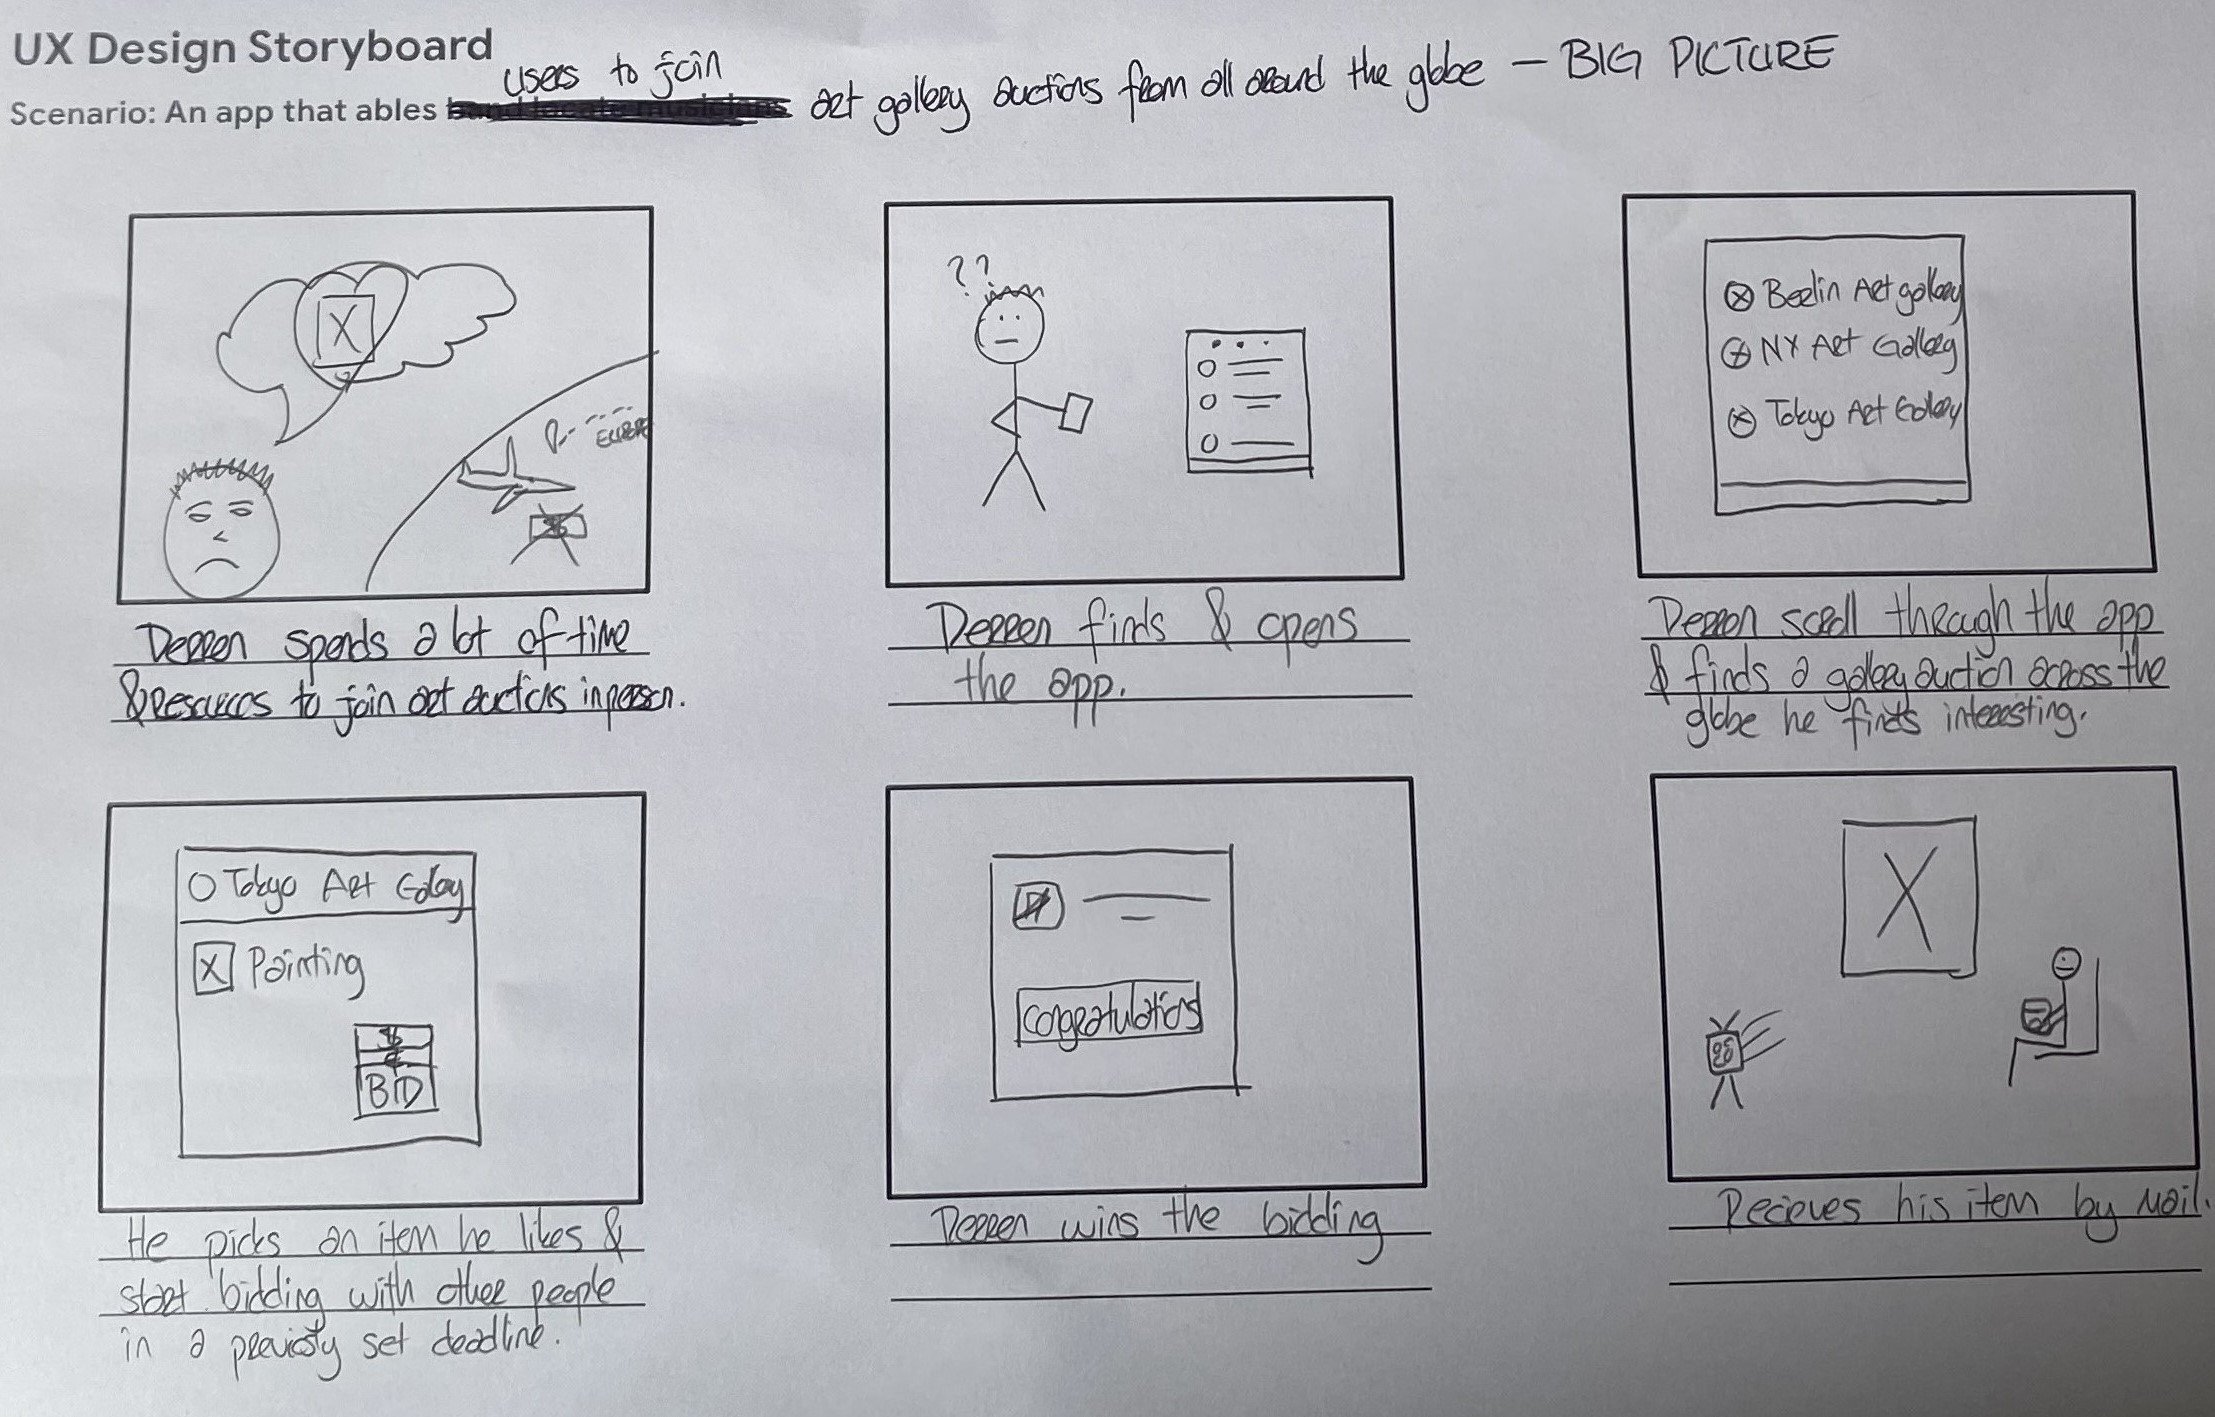 UX Design Storyboard
users to join
Scenario: An app that ables art gallery auctions from all around the globe — BIG PICTURE
X
EUROPE
$
Derren spends a lot of time
& resources to join art auctions in person.
??
Derren finds & opens
the app.
Berlin Art gallery
NY Art Gallery
Tokyo Art Gallery
Derren scroll through the app
& finds a gallery auction across the
globe he finds interesting.
Tokyo Art Gallery
X Painting
$
BID
He picks an item he likes &
start bidding with other people
in a previosty set deadline.
congratulations
Derren wins the bidding
X
Recieves his item by mail.